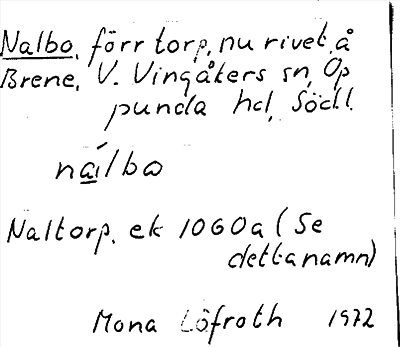 Nalbo, förr torp, nu rivet, å
Brene, V. Vingåkers sn, Op
punda hd, Södll.
nálbo
Naltorp. ek 1060a (Se
detta namn)
Mona Löfroth 1972